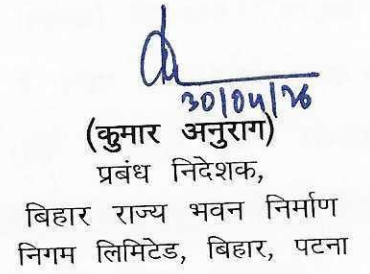 30/04/26
(कुमार अनुराग)
प्रबंध निदेशक,
बिहार राज्य भवन निर्माण
निगम लिमिटेड, बिहार, पटना